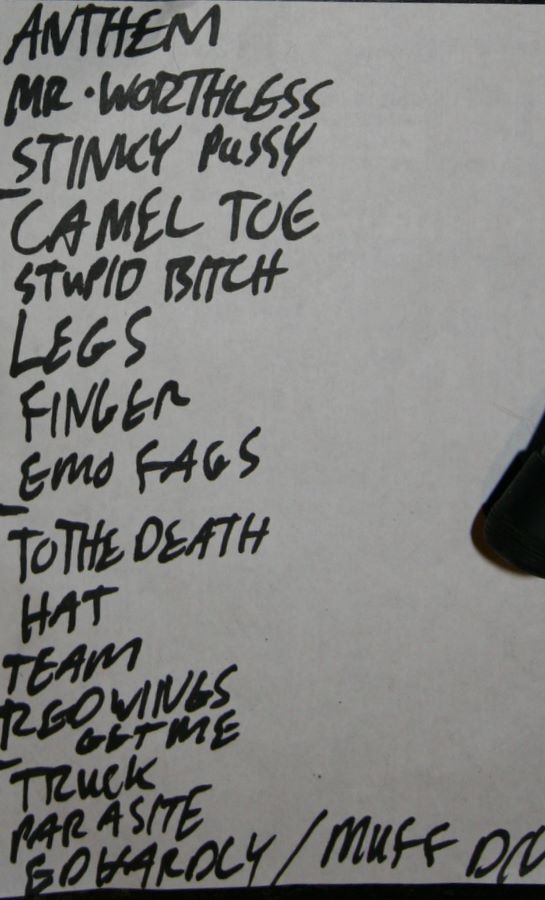 ANTHEM
MR. WORTHLESS
STINKY PUSSY
CAMEL TOE
STUPID BITCH
LEGS
FINGER
EMO FAGS
TO THE DEATH
HAT
TEAM
RED WINGS
GET ME
TRUCK
PARASITE
ED HARDLY / MUFF